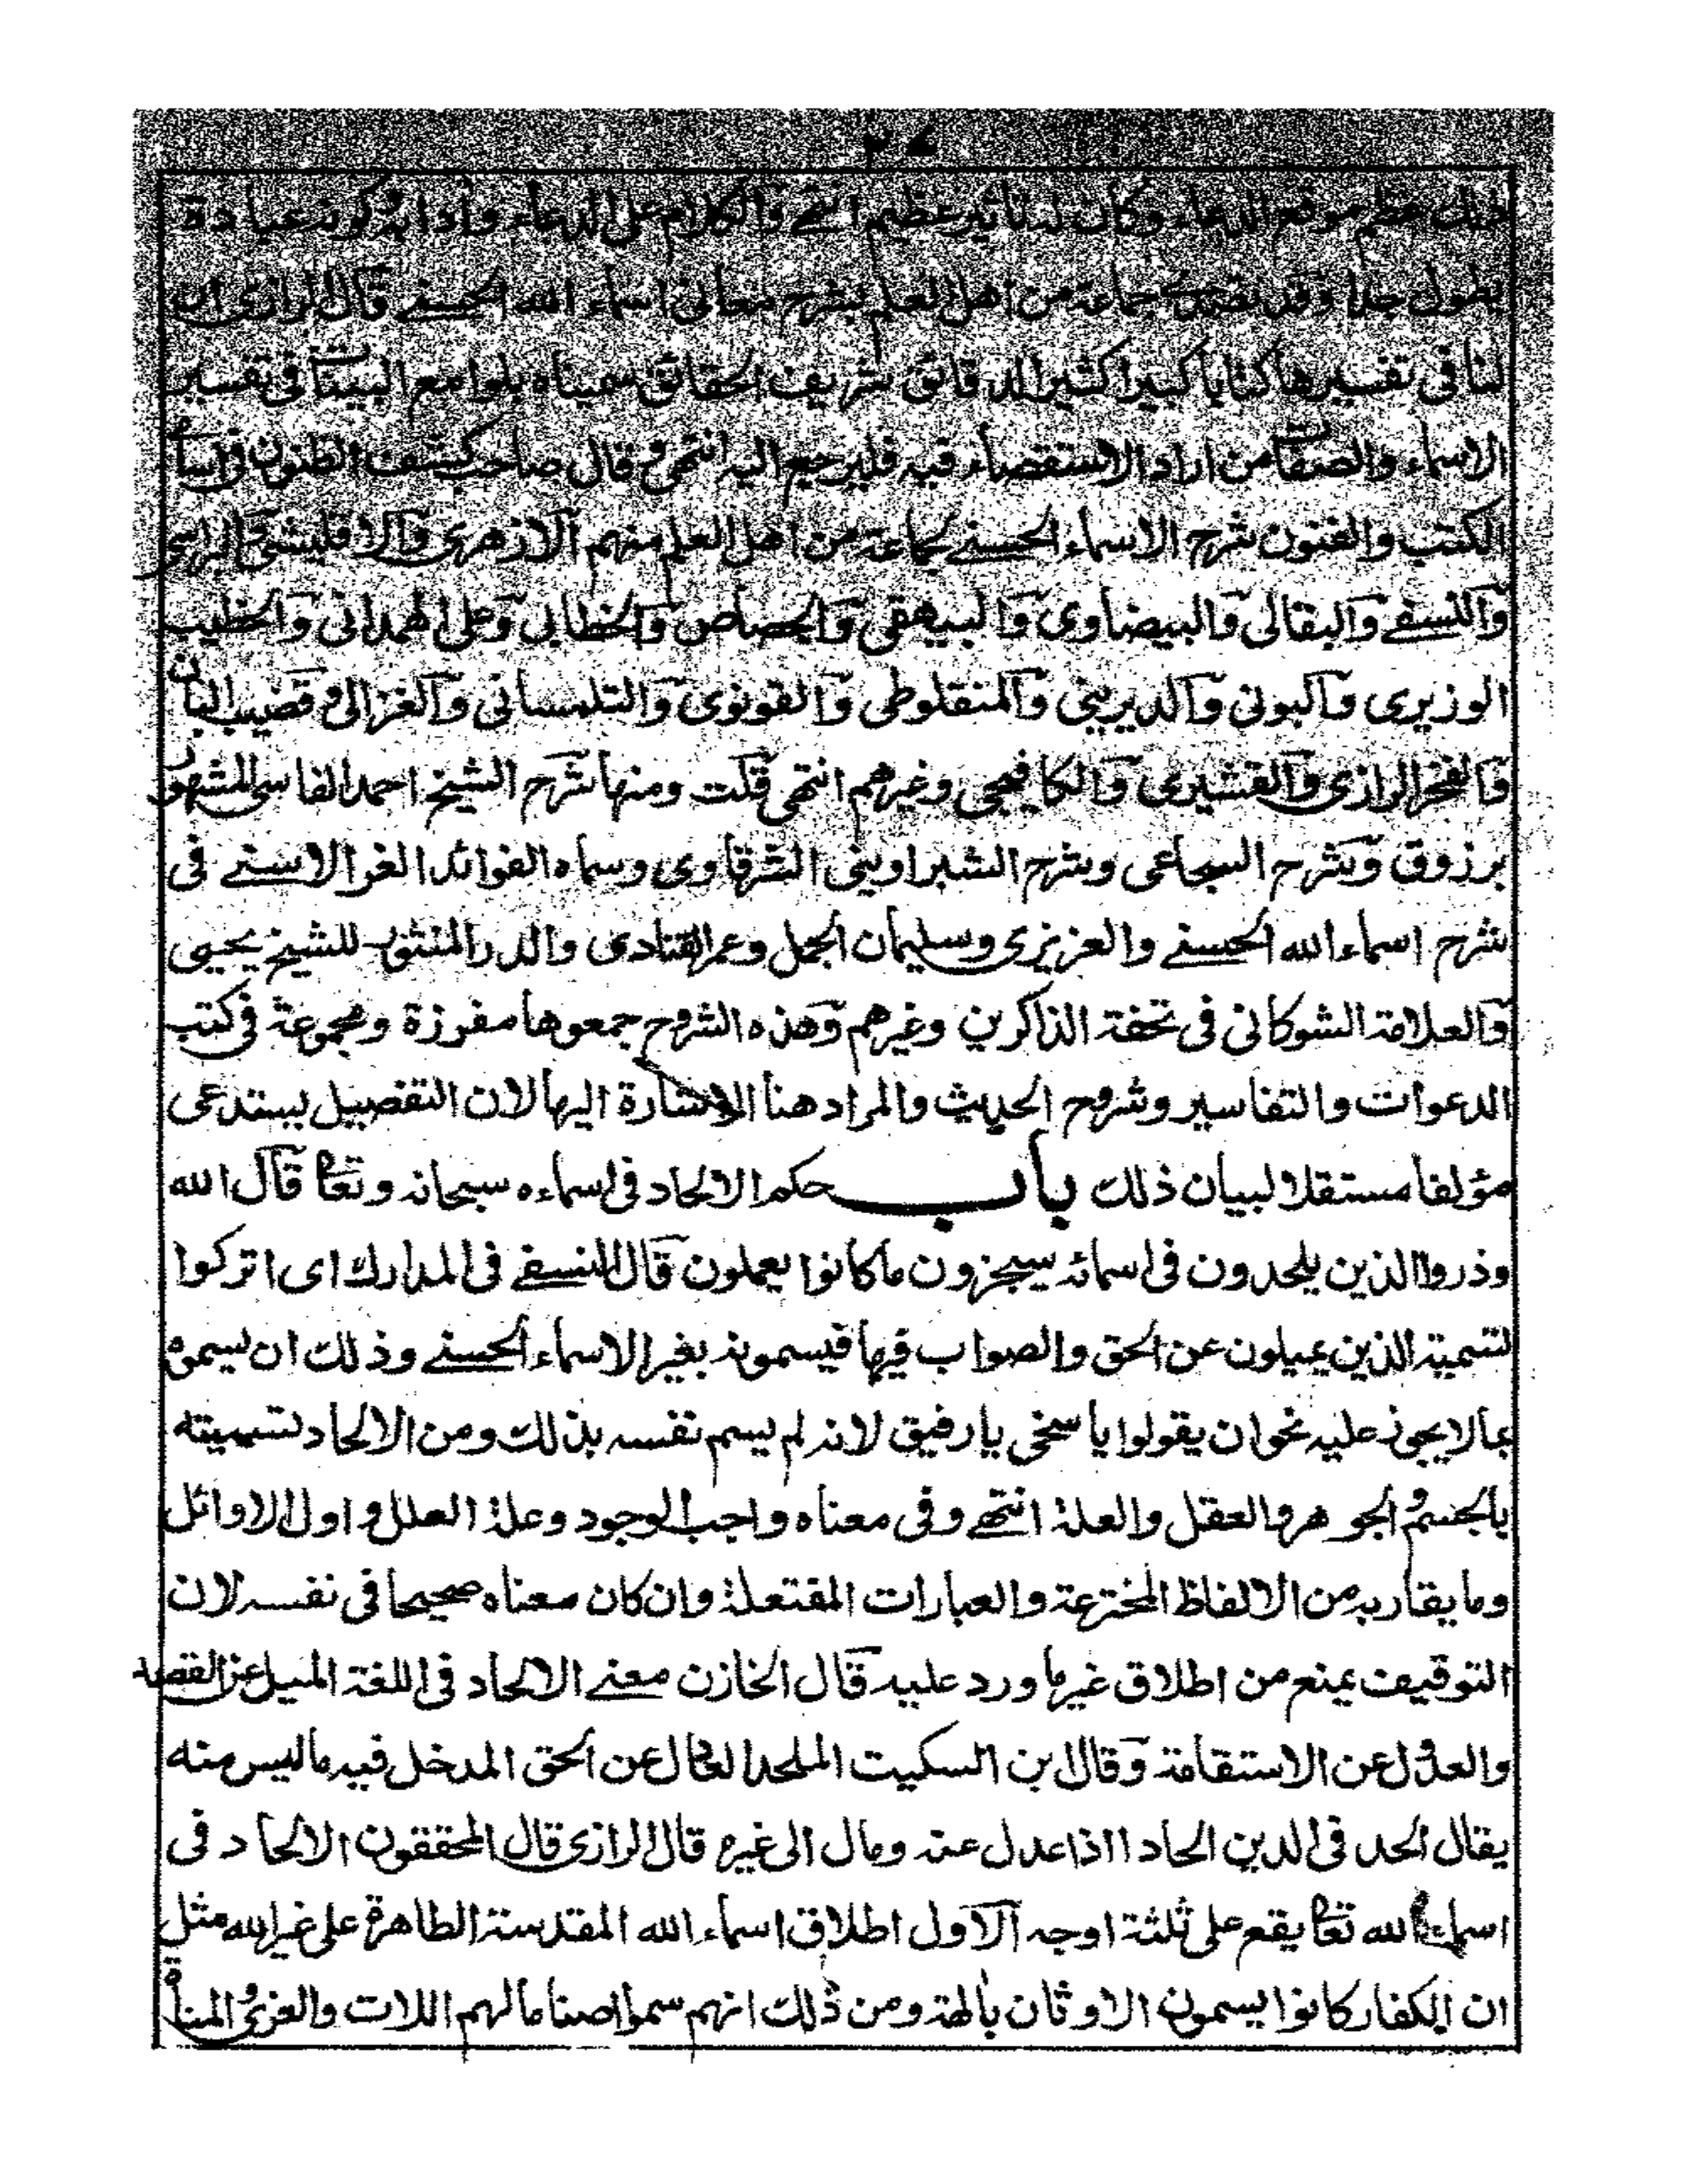 ذلك عظم موقع الدعاء وكان له تاثير عظيم انتهى والكلام على الدعاء وادابه وكونه عبادة
يطول جدا وقد تصدى جماعة من اهل العلم بشرح معانى اسماء الله الحسنى قال الرازى ان
لنا فى تفسيرها كتابا كبيرا كثير الدقائق شريف الحقائق سميناه بلوامع البينات فى تفسير
الاسماء والصفات من اراد الاستقصاء فيه فليرجع اليه انتهى وقال صاحب كشف الظنون فى اسماء
الكتب والفنون شرح الاسماء الحسنى لجماعة من اهل العلم منهم الازهرى والاقليشى و
والنسفى والبقالى والبيضاوى والبيهقى والجصاص والخطابى وعلى الهمدانى والخطيب
الوزيرى والبونى والديرينى والمنفلوطى والقونوى والتلمسانى والغزالى وقضيب البان
والفخر الرازى والقشيرى والكافيجى وغيرهم انتهى قلت ومنها شرح الشيخ احمد الفاسى المشهور
برزوق وشرح السجاعى وشرح الشبراوينى الشرقاوى وسماه الفوائد الغر الاسنى فى
شرح اسماء الله الحسنى والعزيزى وسليمان الجمل وعمر القنادى والدر المنثور للشيخ يحيى
والعلامة الشوكانى فى تحفة الذاكرين وغيرهم وهذه الشروح جمعوها مفرزة ومجموعة فى كتب
الدعوات والتفاسير وشروح الحديث والمراد هنا الاشارة اليها لان التفصيل يستدعى
مؤلفا مستقلا لبيان ذلك باب حكم الالحاد فى اسماءه سبحانه وتعا قال الله
وذروا الذين يلحدون فى اسمائه سيجزون ما كانوا يعملون قال النسفى فى المدارك اى اتركوا
لتسمية الذين يميلون عن الحق والصواب فيها فيسمونه بغير الاسماء الحسنى وذلك ان يسموه
بما لا يجوز عليه نحو ان يقولوا يا سخى يا رفيق لانه لم يسم نفسه بذلك ومن الالحاد لتسميته
بالجسم والجوهر والعقل والعلة انتهى وفى معناه واجب الوجود وعلة العلل واول الاوائل
وما يقاربه من الالفاظ المخترعة والعبارات المفتعلة وان كان معناه صحيحا فى نفسه لان
التوقيف يمنع من اطلاق غير ما ورد عليه قال الخازن معنى الالحاد فى اللغة الميل عن القصد
والعدول عن الاستقامة وقال ابن السكيت الملحد العادل عن الحق المدخل فيه ما ليس منه
يقال الحد فى الدين الحادا اذا عدل عنه ومال الى غيره قال الرازى قال المحققون الالحاد فى
اسماء الله تعا يقع على ثلثة اوجه الاول اطلاق اسماء الله المقدسة الطاهرة على غير الله مثل
ان الكفار كانوا يسمون الاوثان بالهة ومن ذلك انهم سموا اصناما لهم اللات والعزى والمناة